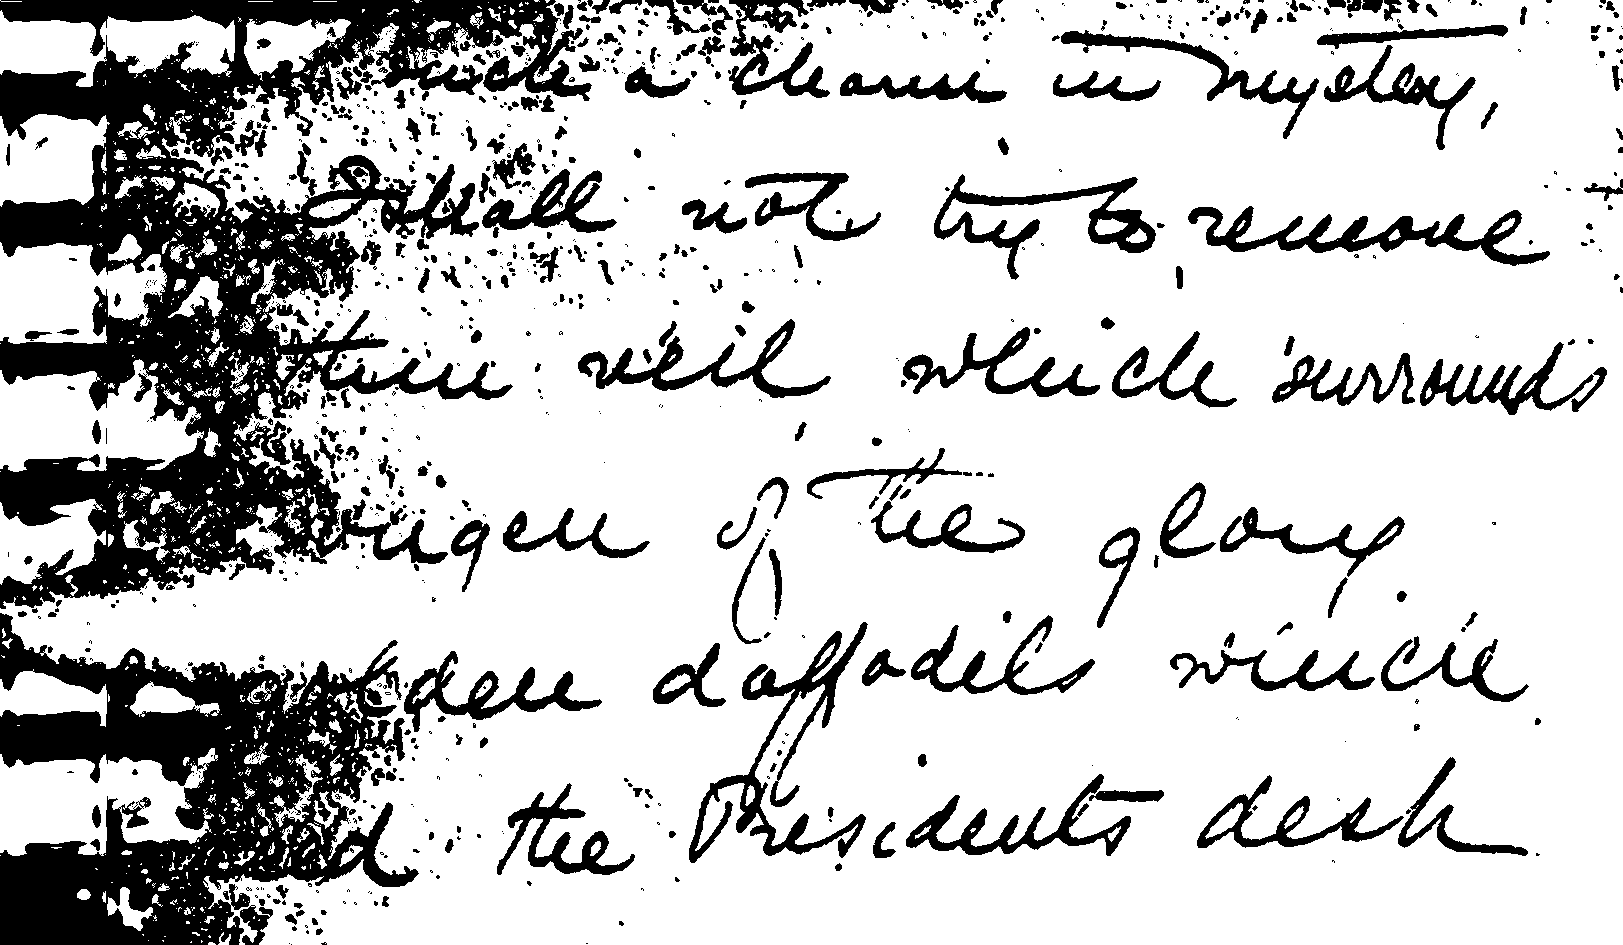 such a charm in mystery,
I shall not try to remove
thin veil which surrounds
origen of the glory
golden daffodils which
the Presidents desk